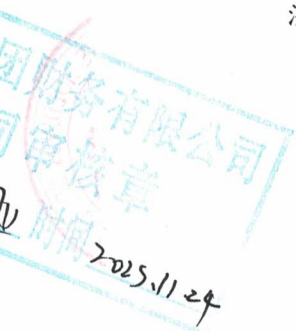 团财务有限公司
司审核章
时间 2025.11.24